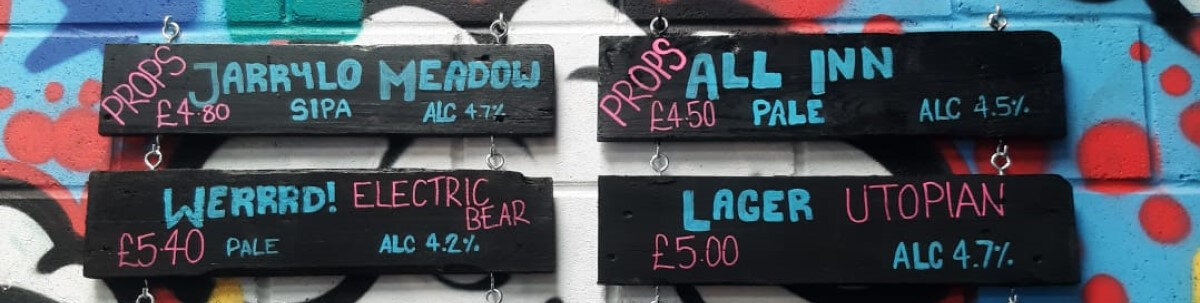 PROPS JARRYLO MEADOW
£4.80 SIPA ALC 4.7%
PROPS ALL INN
£4.50 PALE ALC 4.5%
WERRRD! ELECTRIC BEAR
£5.40 PALE ALC 4.2%
LAGER UTOPIAN
£5.00 ALC 4.7%